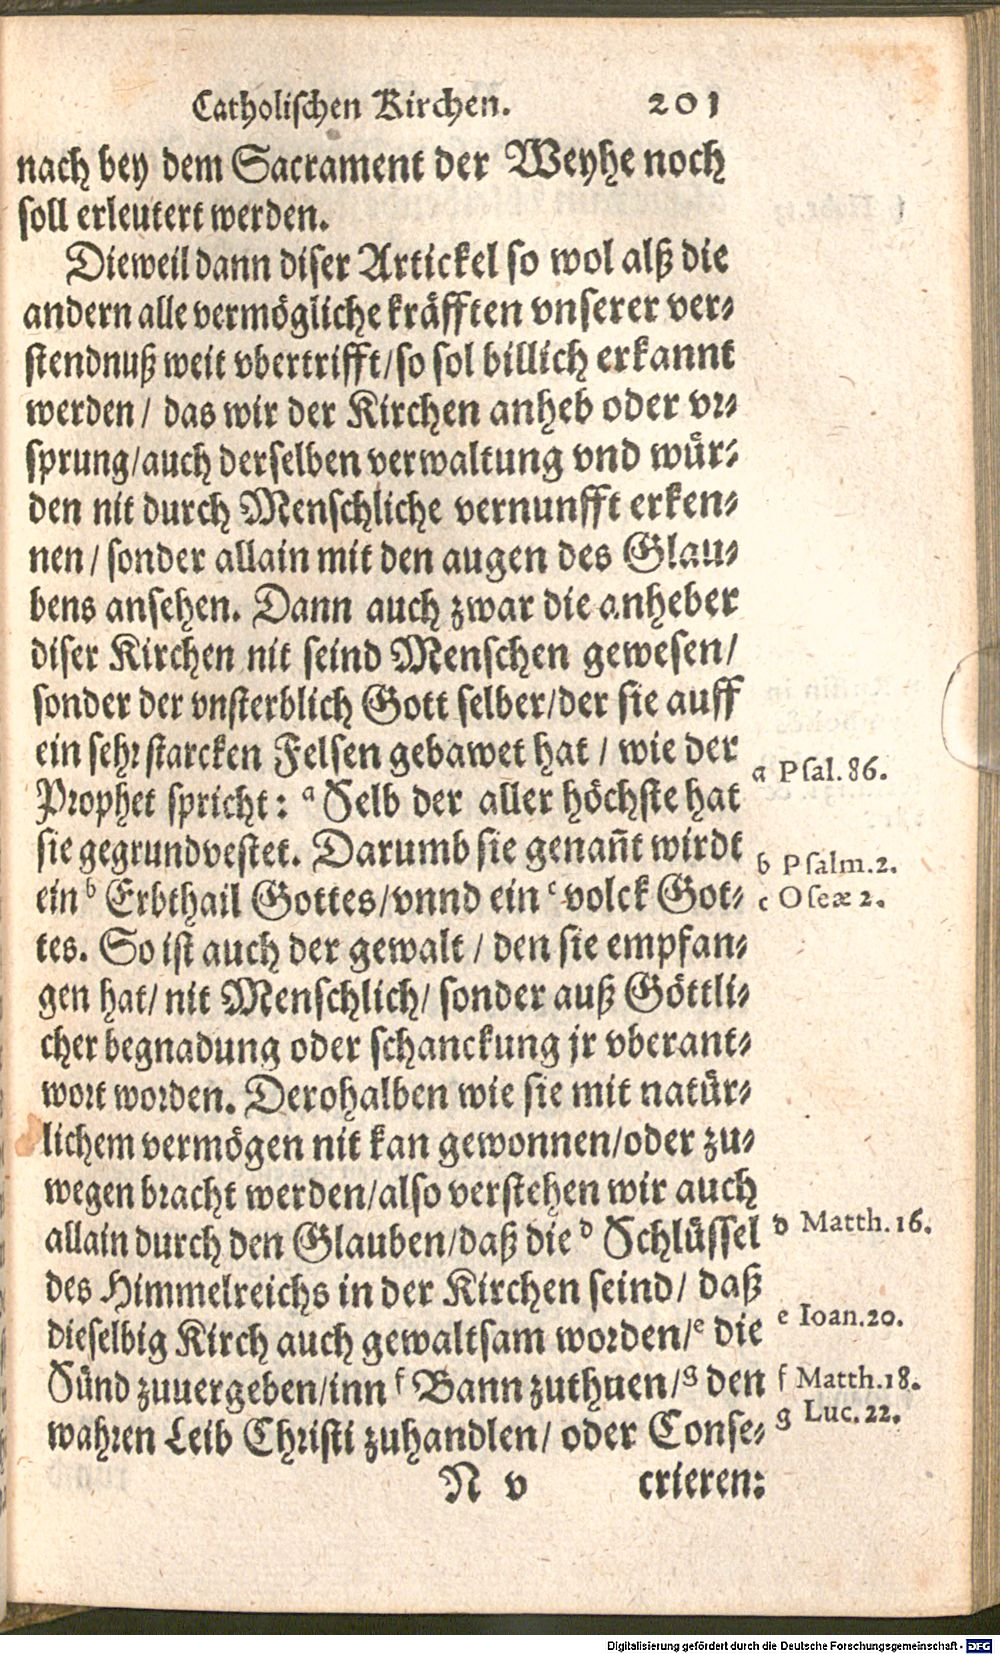 Catholischen Kirchen. 201
nach bey dem Sacrament der Weyhe noch
soll erleutert werden.
Dieweil dann diser Artickel so wol alß die
andern alle vermögliche kräfften vnserer ver-
stendnuß weit vbertrifft/so sol billich erkannt
werden/ das wir der Kirchen anheb oder vr-
sprung/auch derselben verwaltung vnd wür-
den nit durch Menschliche vernunfft erken-
nen/sonder allain mit den augen des Glau-
bens ansehen. Dann auch zwar die anheber
diser Kirchen nit seind Menschen gewesen/
sonder der vnsterblich Gott selber/der sie auff
ein sehr starcken Felsen gebawet hat / wie der
Prophet spricht: a Selb der aller höchste hat
a Psal. 86.
sie gegrundvestet. Darumb sie genañt wirdt
ein b Erbthail Gottes/vnnd ein c volck Got-
b Psalm. 2.
c Oseæ 2.
tes. So ist auch der gewalt / den sie empfan-
gen hat/ nit Menschlich/ sonder auß Göttli-
cher begnadung oder schanckung jr vberant-
wort worden. Derohalben wie sie mit natür-
lichem vermögen nit kan gewonnen/oder zu-
wegen bracht werden/also verstehen wir auch
allain durch den Glauben/daß die d Schlüssel
d Matth. 16.
des Himmelreichs in der Kirchen seind/ daß
dieselbig Kirch auch gewaltsam worden/e die
e Ioan. 20.
Sünd zuuergeben/inn f Bann zuthuen/g den
f Matth. 18.
wahren Leib Christi zuhandlen/ oder Conse-
g Luc. 22.
N v crieren:
Digitalisierung gefördert durch die Deutsche Forschungsgemeinschaft - DFG